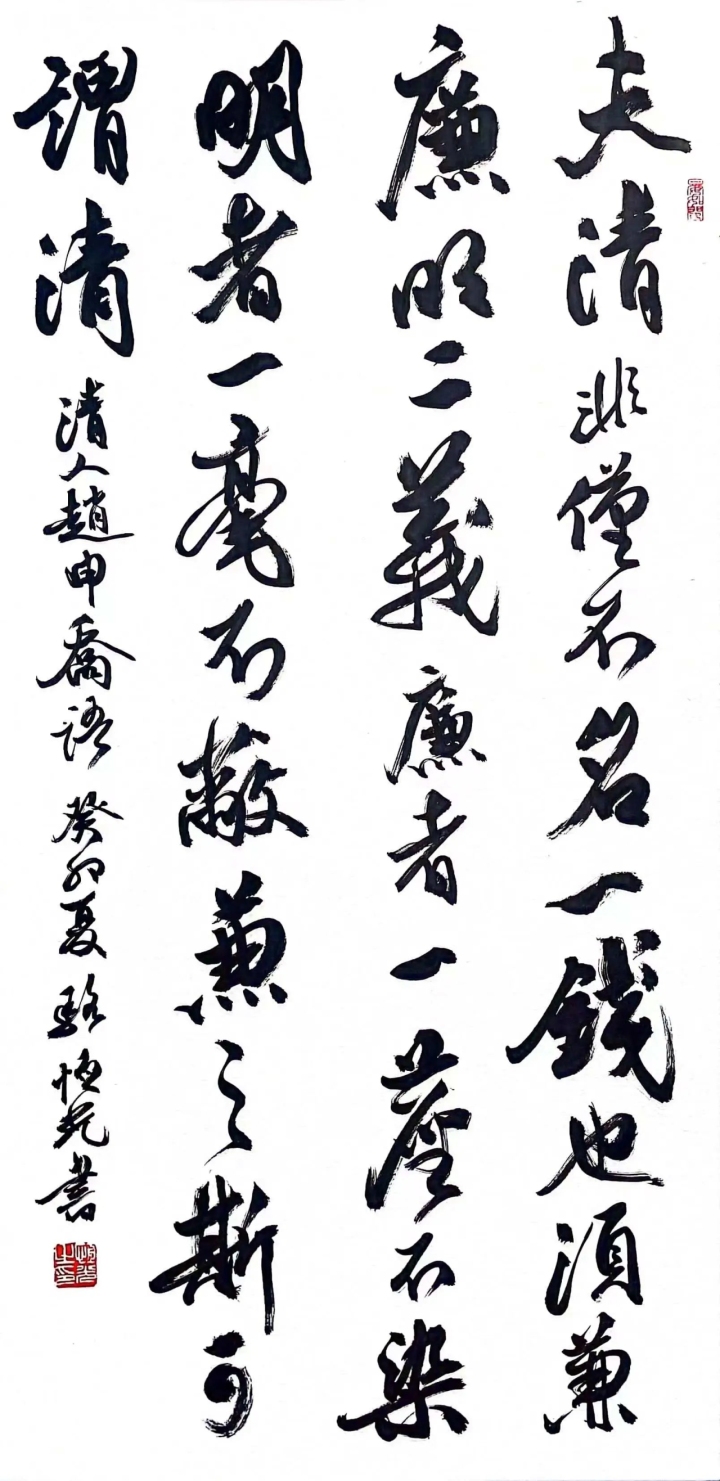 夫清非僅不名一錢也須兼
廉明二義廉者一塵不染
明者一毫不蔽兼之斯可
謂清
清人趙申喬語 癸卯夏 駱恒光書